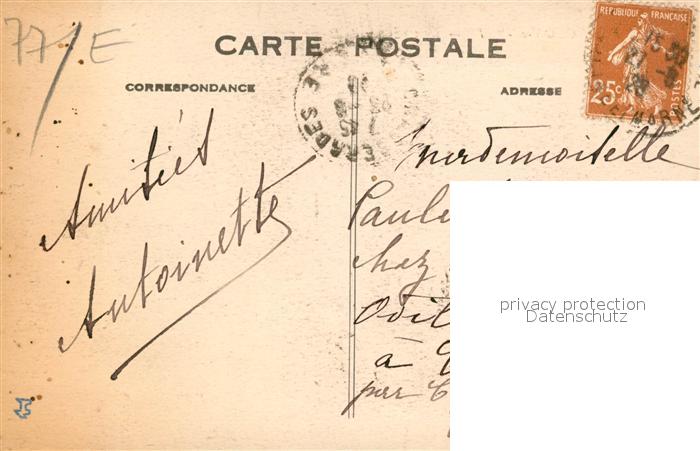 77/E
CARTE POSTALE
CORRESPONDANCE
ADRESSE
REPUBLIQUE FRANÇAISE
25c
POSTES
MARNE
Amitiés
Antoinette
Mademoiselle
chez
à
par
privacy protection
Datenschutz